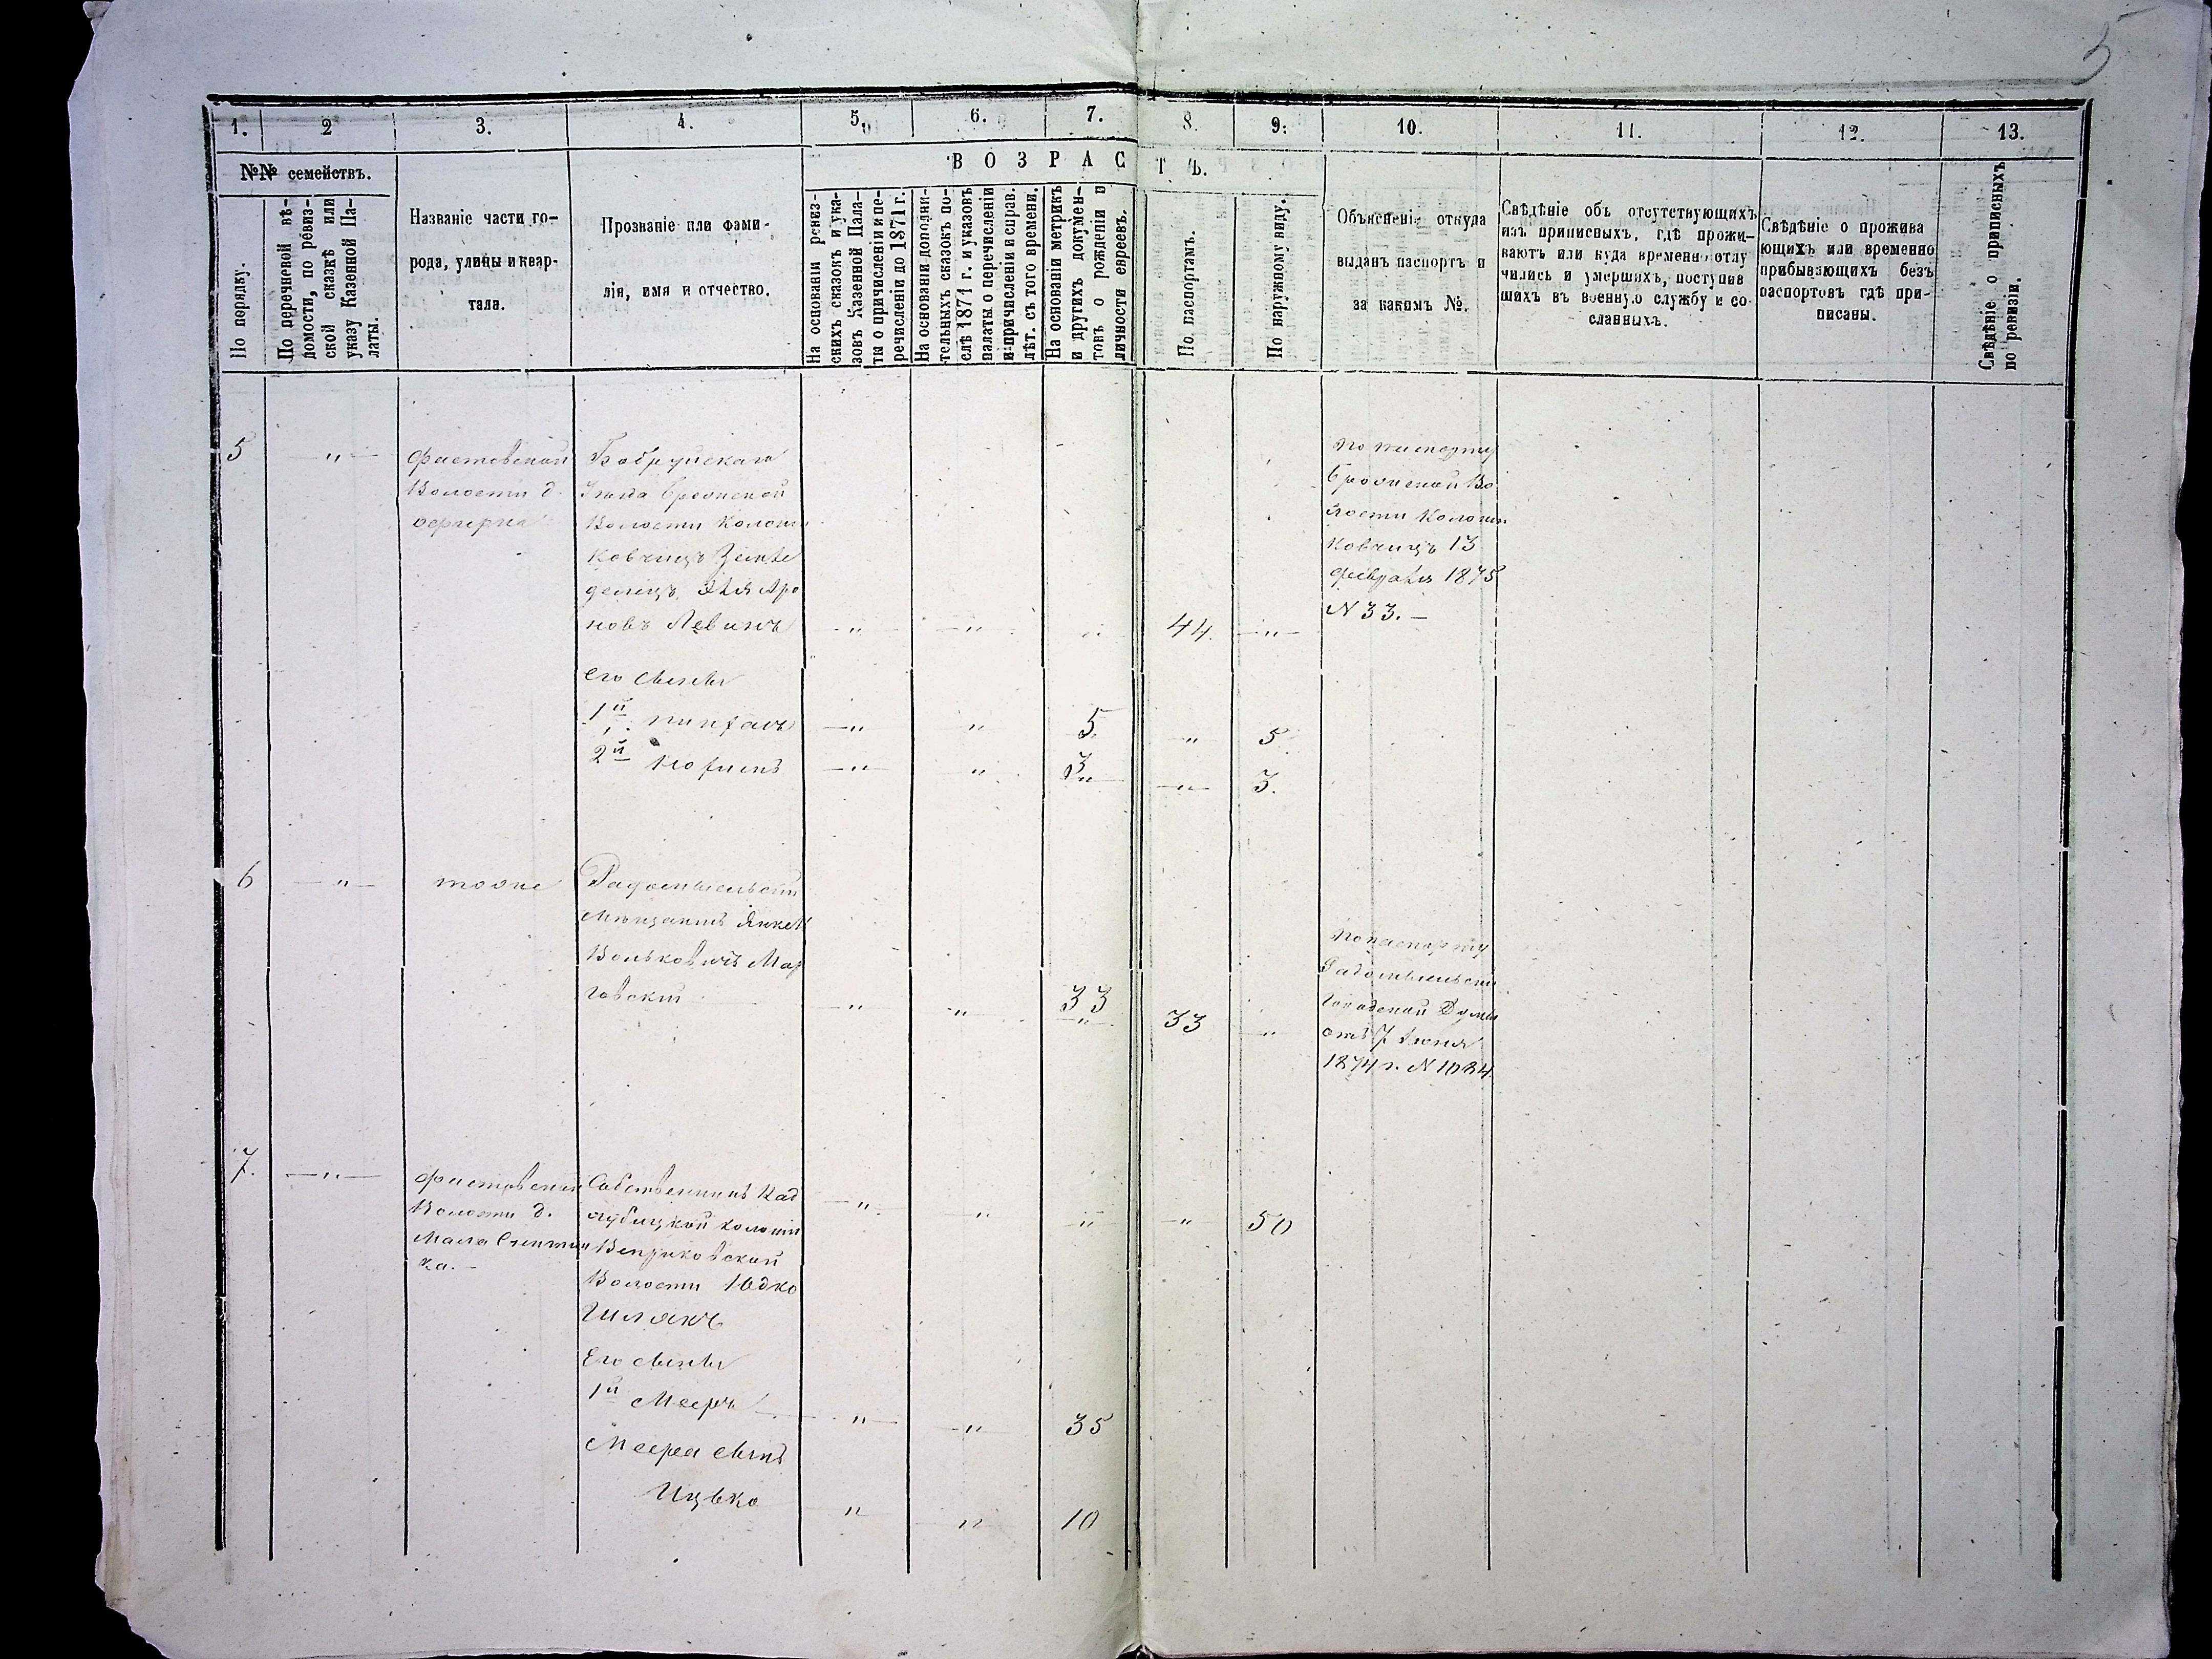 5
1. 2 3. 4. 5. 6. 7. 8. 9. 10. 11. 12. 13.
№№ семействъ.
ВОЗРАСТЪ.
По порядку.
По перечневой вѣ-
домости, по ревиз-
ской сказкѣ или
указу Казенной Па-
латы.
Названіе части го-
рода, улицы и квар-
тала.
Прозваніе или фами-
лія, имя и отчество.
На основаніи ревиз-
скихъ сказокъ и ука-
зовъ Казенной Пала-
ты о причисленіи и пе-
речисленіи до 1871 г.
На основаніи дополни-
тельныхъ сказокъ по-
слѣ 1871 г. и указовъ
палаты о перечисленіи
и причисленіи и справ.
лѣт. съ того времени.
На основаніи метрикъ
и другихъ докумен-
товъ о рожденіи и
личности евреевъ.
По паспортамъ.
По наружному виду.
Объясненіе откуда
выданъ паспортъ и
за какимъ №.
Свѣдѣніе объ отсутствующихъ
изъ приписныхъ, гдѣ прожи-
ваютъ или куда временно отлу
чились и умершихъ, поступив
шихъ въ военную службу и со
сланныхъ.
Свѣдѣніе о прожива
ющихъ или временно
прибывающихъ безъ
паспортовъ гдѣ при-
писаны.
Свѣдѣніе о приписныхъ
по ревизіи.
5 — " —
Фастовской
Волости д.
Бобруйскаго
Уѣзда
Волости Колоніи
Ковчицъ Землѣ
делецъ Эля Аро
новъ Левинъ — " — — " — " 44. — " —
По паспорту
Во
лости Колоніи
Ковчицъ 13
февраля 1875
N 33. —
Его сынья
1й Пинхасъ — " — " 5. " 5.
2й — " — " 3 " — " — 3.
6 — " — тоже
Радомысльскій
Мѣщанинъ Янкель
Вольковичъ Мар
говскій " " 33 " 33 "
По паспорту
Радомысльской
Городской Думы
отъ 7 Іюня
1874 г. N 1084.
7. — " —
Фастовской
Волости д.
Мала Снитин
ка. —
Собственникъ Кад
лубицкой колоніи
Веприковской
Волости Юдко
Шлякъ — " — " " " 50
Его сынья
1й Мееръ " — " 35
Меера сынъ
Ицько " " 10